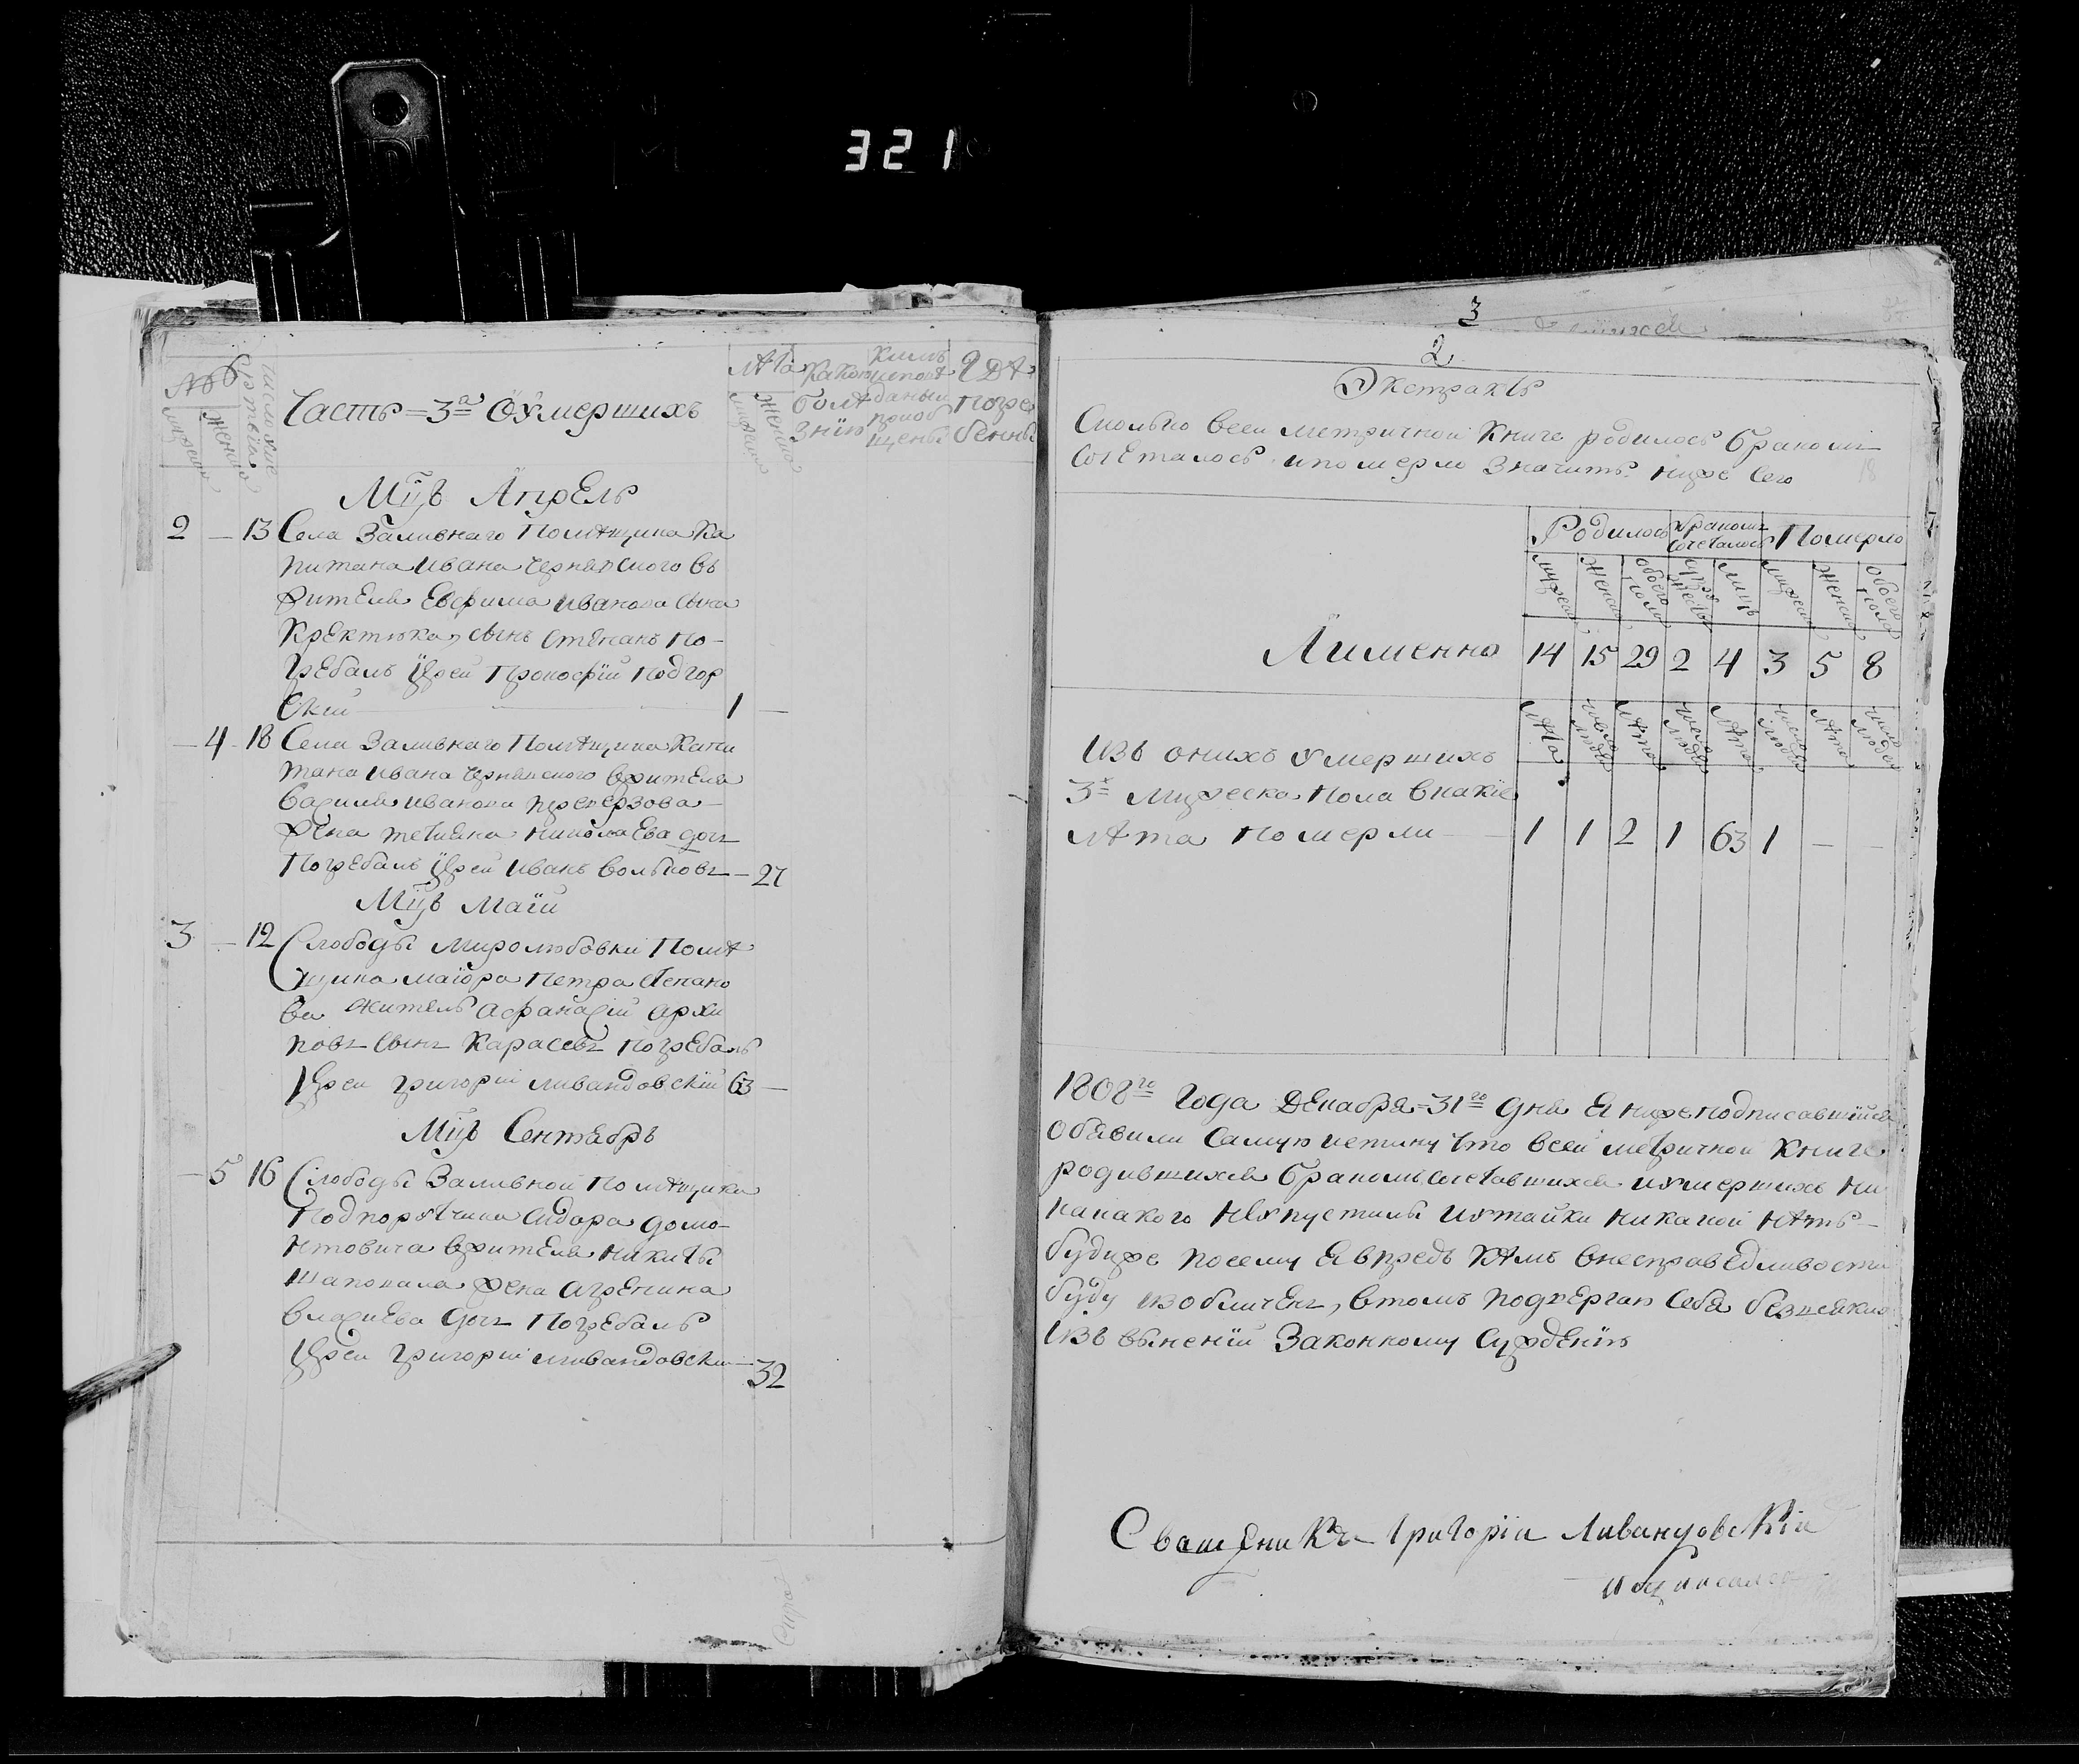 321
№
мужеска
женска
число умертвія
Часть 3я О умершихъ
лѣта
мужеска
женска
какою болѣзнію
кимъ исповѣданы и пріобщены
гдѣ погребенны
Мцъ Апрель
2 — 13 Села Заливнаго помѣщика ка
питана Ивана Чернявского въ
жителя Евфима Иванова сына
сынъ Стефанъ по-
гребалъ Іерей Прокофій Подгор
скій 1 —
— 4 18 Села Заливнаго помѣщика капи
тана Ивана Чернявского вжителя
Василия Иванова
жена Татіяна Николаева дочь
погребалъ Іерей Иванъ Волковъ — 27
Мцъ Маій
3 — 12 Слободы Миролюбовки помѣ
щика маіора Петра Степано
ва житель Афанасій Архи
повъ сынъ Карасевъ погребалъ
Іерей Григорій Ливандовскій 63 —
Мцъ Сентябрь
— 5 16 Слободы Заливной помѣщика
подпорутчика Сидора Домо-
нтовича вжителя Никиты
Шаповала жена Агрепина
Власиева дочь погребалъ
Іерей Григорій Ливандовскій — 32
3
2
Экстрактъ
Сколько всей метричной книге родилось бракомъ
сочеталось и померло значитъ ниже сего
18
Родилось
бракомъ сочеталось
Померло
мужеска
женска
обоего пола
лицъ
мужеска
женска
обоего пола
А именно 14 15 29 2 4 3 5 8
лѣта
число людей
лѣта
число людей
лѣта
число людей
лѣта
число людей
Изъ онихъ умершихъ
3х мужеска пола в какіе
лѣта померли — 1 1 2 1 63 1 — —
1808го года Декабря 31го дня я нижеподписавшійся
обявили самую истину что всей метричной книге
родившихся бракомъ сочетавшихся и умершихъ ни
какакого не упустилы и утайки никакой нѣтъ —
будиже посему я впредь кѣмъ внесправедливости
буду изобличенъ, втомъ подвергаю себя безвсякихъ
извѣненій законному сужденію
Свашеникъ Григорій Ливандовскій